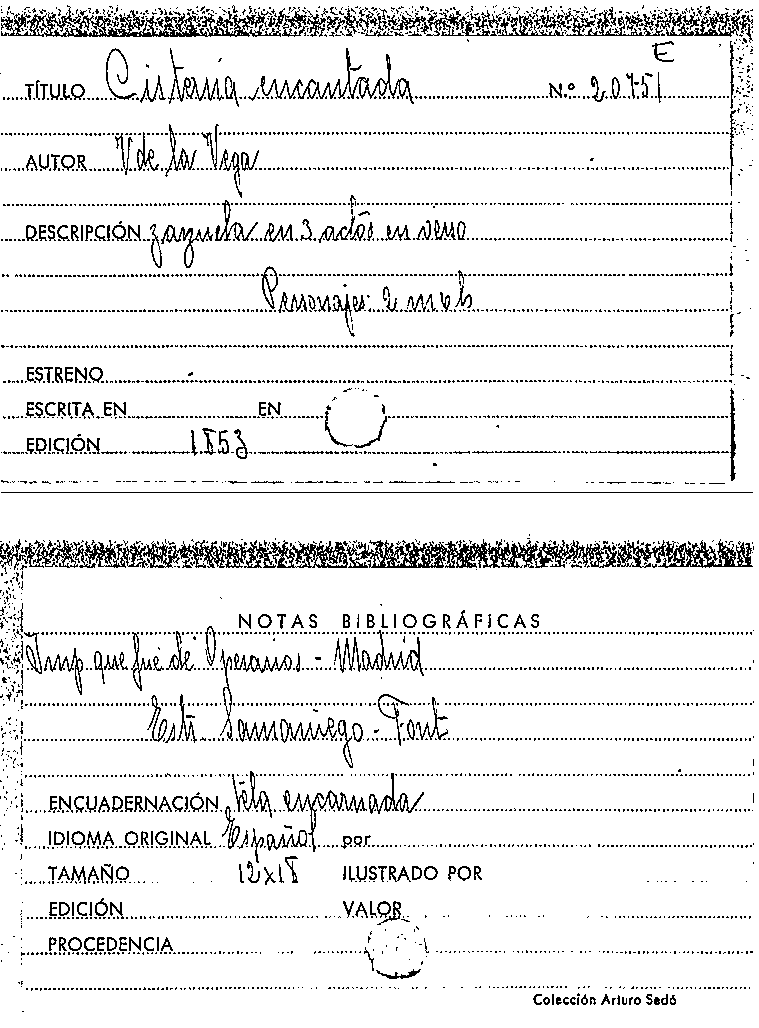 E
TÍTULO Cisterna encantada Nº 20751
AUTOR V de la Vega
DESCRIPCIÓN zarzuela en 3 actos en verso
Personajes: 2 m 6 h
ESTRENO
ESCRITA EN EN
EDICIÓN 1853
NOTAS BIBLIOGRÁFICAS
Imp que fué de Operarios - Madrid
Estr. Samaniego - Font
ENCUADERNACIÓN tela encarnada
IDIOMA ORIGINAL Español por
TAMAÑO 12x18 ILUSTRADO POR
EDICIÓN VALOR
PROCEDENCIA
Colección Arturo Sedó